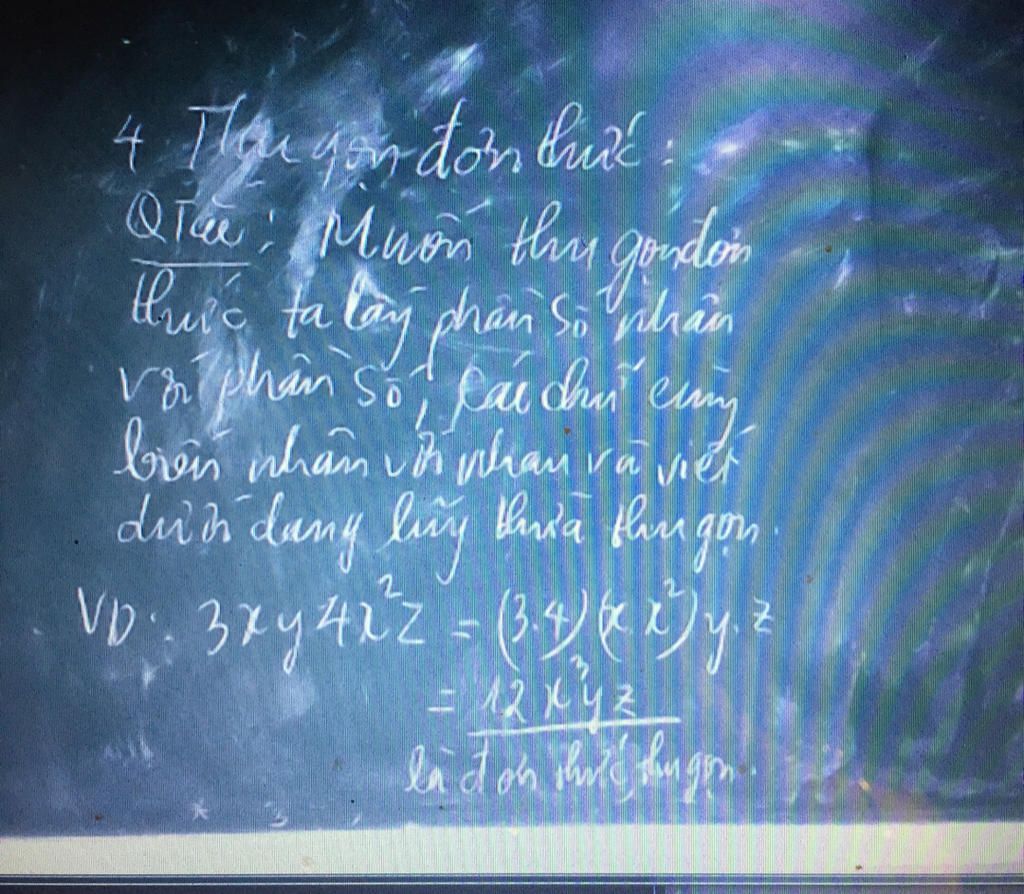 4 Thu gọn đơn thức:
QTắc: Muốn thu gọn đơn
thức ta lấy phần số nhân
với phần số, các chữ cùng
biến nhân với nhau và viết
dưới dạng lũy thừa thu gọn.
VD: 3xy4x²z = (3.4)(x.x²)y.z
= 12x³yz
là đơn thức thu gọn.